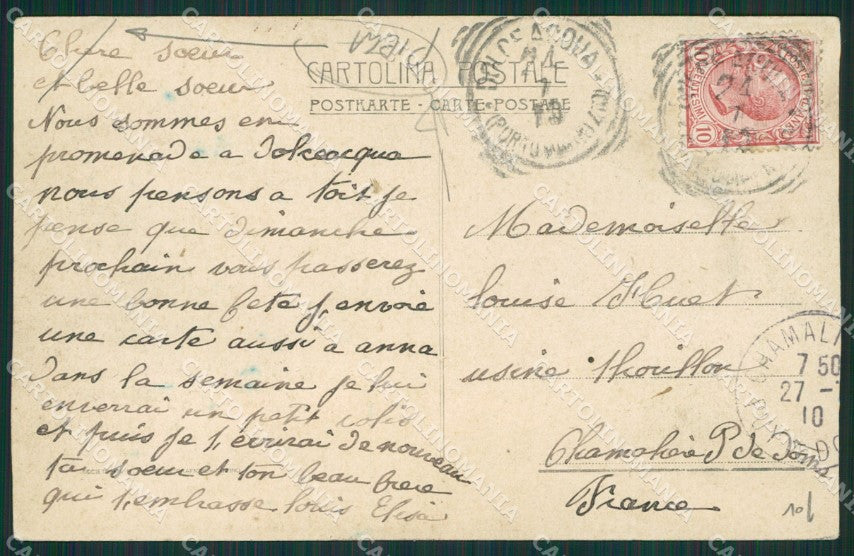 Chere soeur
et belle soeur
Nous sommes en
promenade a Dolceacqua
nous pensons a toit je
pense que dimanche
prochain vous passerez
une bonne fete j,envoie
une carte aussi a anna
dans la semaine je lui
enverrai un petit colis
et puis je t,écrirai de nouveau
ta soeur et ton beau frere
qui t,embrasse louis Elisa
CARTOLINA POSTALE
POSTKARTE - CARTE-POSTALE
DOLCEACQUA
24
10
Mademoiselle
louise Huet
usine
P de Dome
France
CHAMALI
7 50
27 -
10
CARTOLINOMANIA